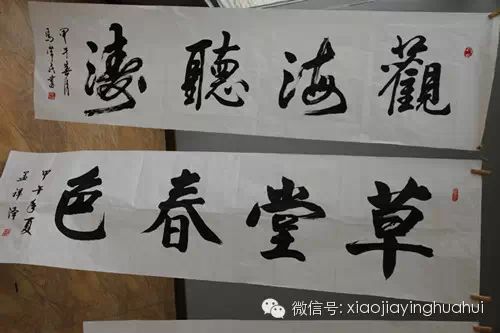 觀海聽濤
甲午春月
草堂春色
甲午年夏
微信号: xiaojiayinghuahui